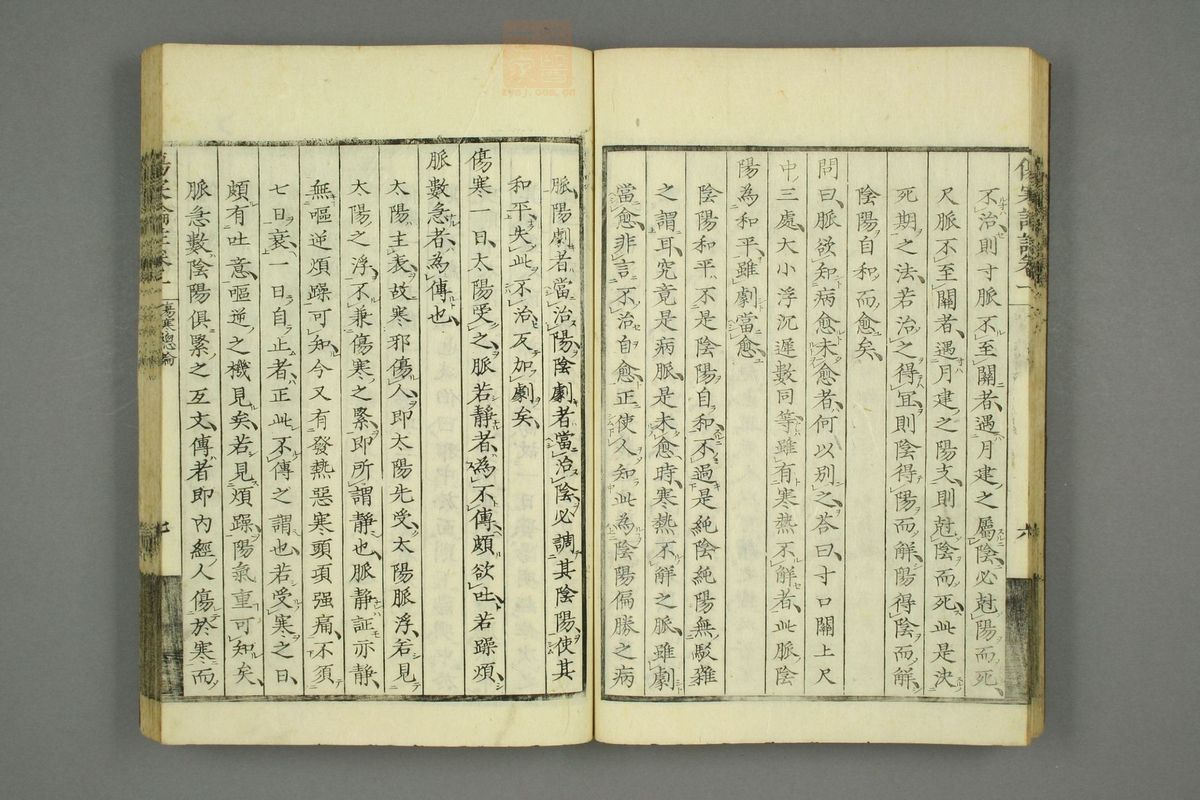 不治則寸脈不至關者遇月建之屬陰必尅陽而死
尺脈不至關者遇月建之陽支則尅陰而死此是決
死期之法若治之得宜則陰得陽而解陽得陰而解
陰陽自和而愈矣
問曰脈欲知病愈未愈者何以別之荅曰寸口關上尺
中三處大小浮沉遲數同等雖有寒熱不解者此脈陰
陽為和平雖劇當愈
陰陽和平不是陰陽自和不過是純陰純陽無駁雜
之謂耳究竟是病脈是未愈時寒熱不解之脈雖劇
當愈非言不治自愈正使人知此為陰陽偏勝之病
六
脈陽劇者當治陽陰劇者當治陰必調其陰陽使其
和平失此不治反加劇矣
傷寒一日太陽受之脈若靜者為不傳頗欲吐若躁煩
脈數急者為傳也
太陽主表故寒邪傷人即太陽先受太陽脈浮若見
太陽之浮不兼傷寒之緊即所謂靜也脈靜証亦靜
無嘔逆煩躁可知今又有發熱惡寒頭項强痛不須
七日衰一日自止者正此不傳之謂也若受寒之日
頗有吐意嘔逆之機見矣若見煩躁陽氣重可知矣
脈急數陰陽俱緊之互文傳者即內經人傷於寒而
傷寒總論